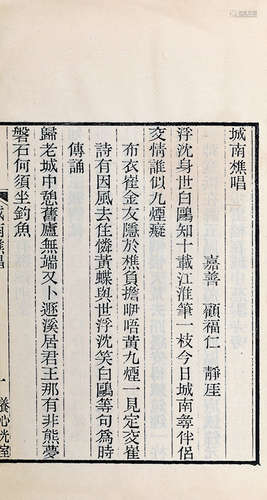 城南樵唱
嘉善　顧福仁　靜厓
浮沈身世白鷗知十載江淮筆一枝今日城南尋伴侶
交情誰似九煙癡
布衣崔金友隱於樵負擔咿唔黃九煙一見定交崔
詩有因風去住憐黃蝶與世浮沈笑白鷗等句為時
傳誦
歸老城中憩舊廬無端又卜遯溪居君王那有非熊夢
磐石何須坐釣魚
城南樵唱
一
養心光室